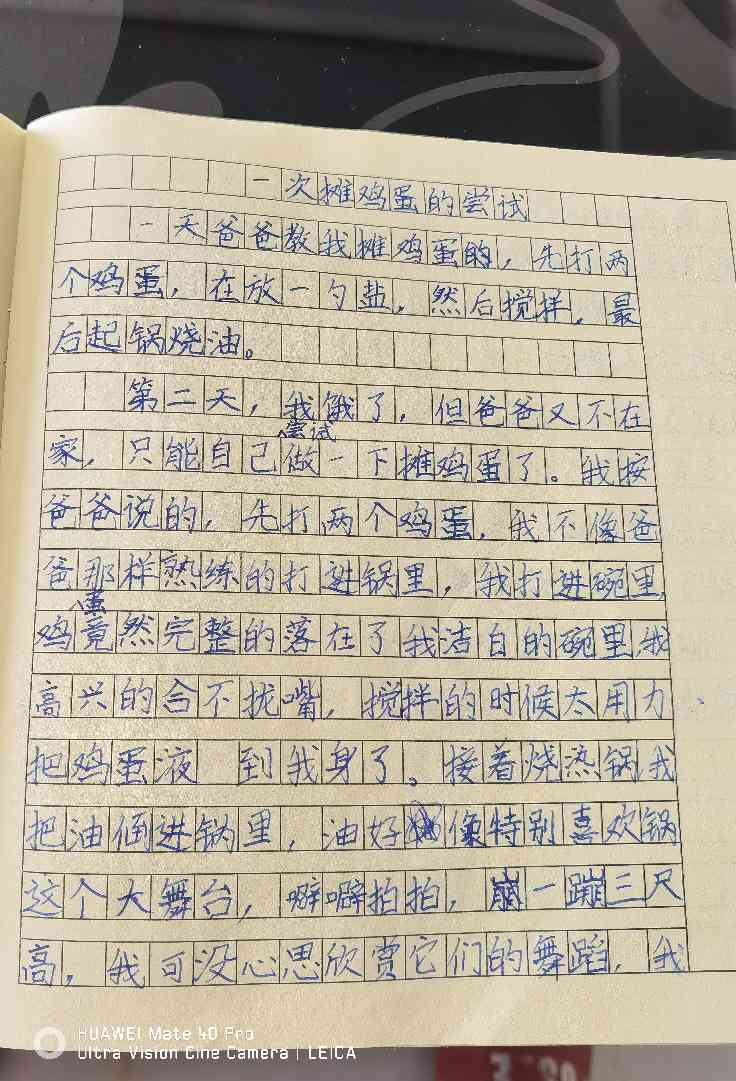 一次摊鸡蛋的尝试
一天爸爸教我摊鸡蛋的，先打两
个鸡蛋，在放一勺盐，然后搅拌，最
后起锅烧油。
第二天，我饿了，但爸爸又不在
尝试
家，只能自己做一下摊鸡蛋了。我按
爸爸说的，先打两个鸡蛋，我不像爸
爸那样熟练的打进锅里，我打进碗里，
蛋
鸡竟然完整的落在了我洁白的碗里，我
高兴的合不拢嘴，搅拌的时候太用力
把鸡蛋液 到我身了。接着烧热锅，我
把油倒进锅里，油好像特别喜欢锅
这个大舞台，噼噼拍拍，崩一蹦三尺
高，我可没心思欣赏它们的舞蹈，我
HUAWEI Mate 40 Pro
Ultra Vision Cine Camera | LEICA